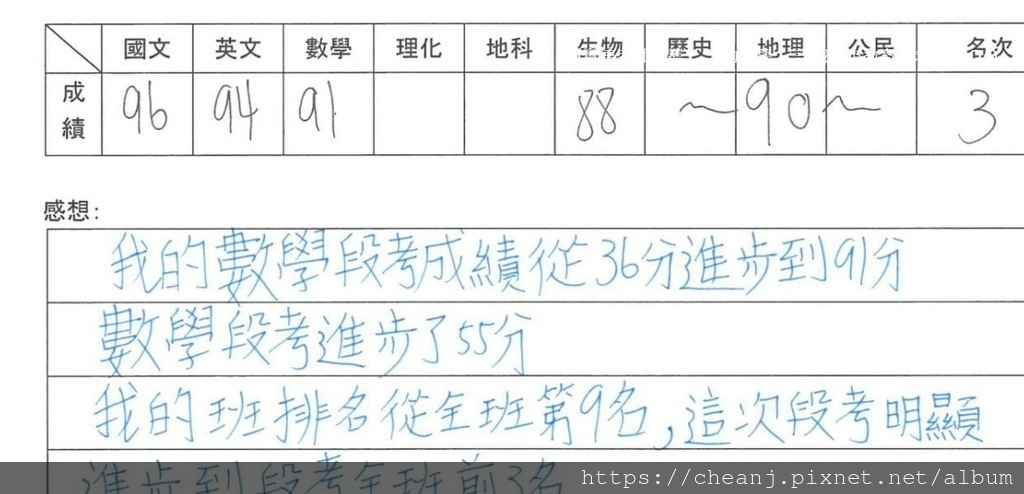 國文 英文 數學 理化 地科 生物 歷史 地理 公民 名次
成績 96 94 91 88 ~90~ 3
感想:
我的數學段考成績從36分進步到91分
數學段考進步了55分
我的班排名從全班第9名,這次段考明顯
進步到段考全班前3名
https://cheanj.pixnet.net/album